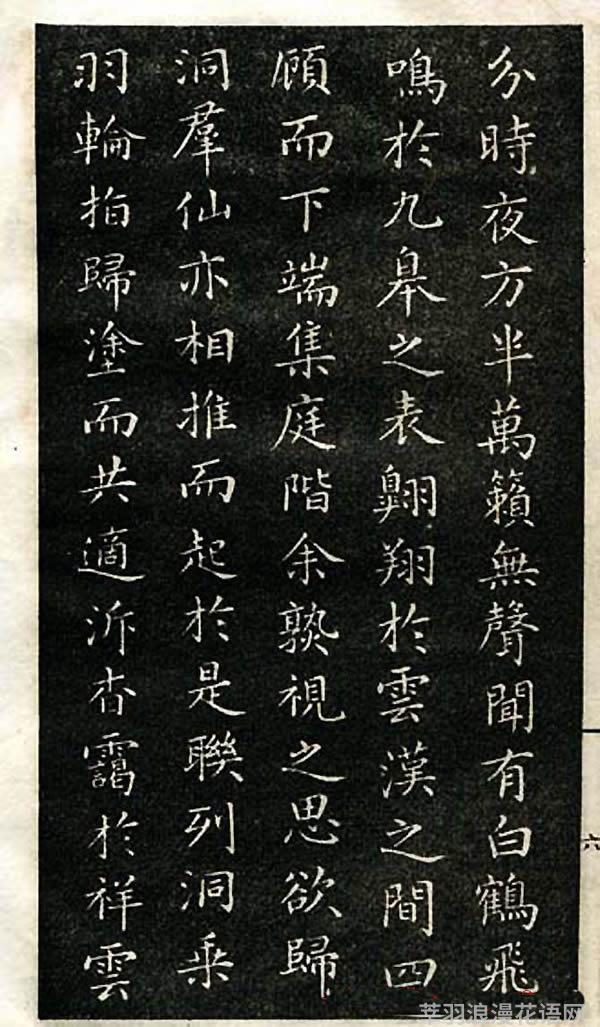 分時夜方半萬籟無聲聞有白鶴飛
鳴於九皋之表翺翔於雲漢之間四
顧而下端集庭階余孰視之思欲歸
洞羣仙亦相推而起於是聯列洞乘
羽輪指歸塗而共適泝杳靄於祥雲
六
羽浪漫花语网